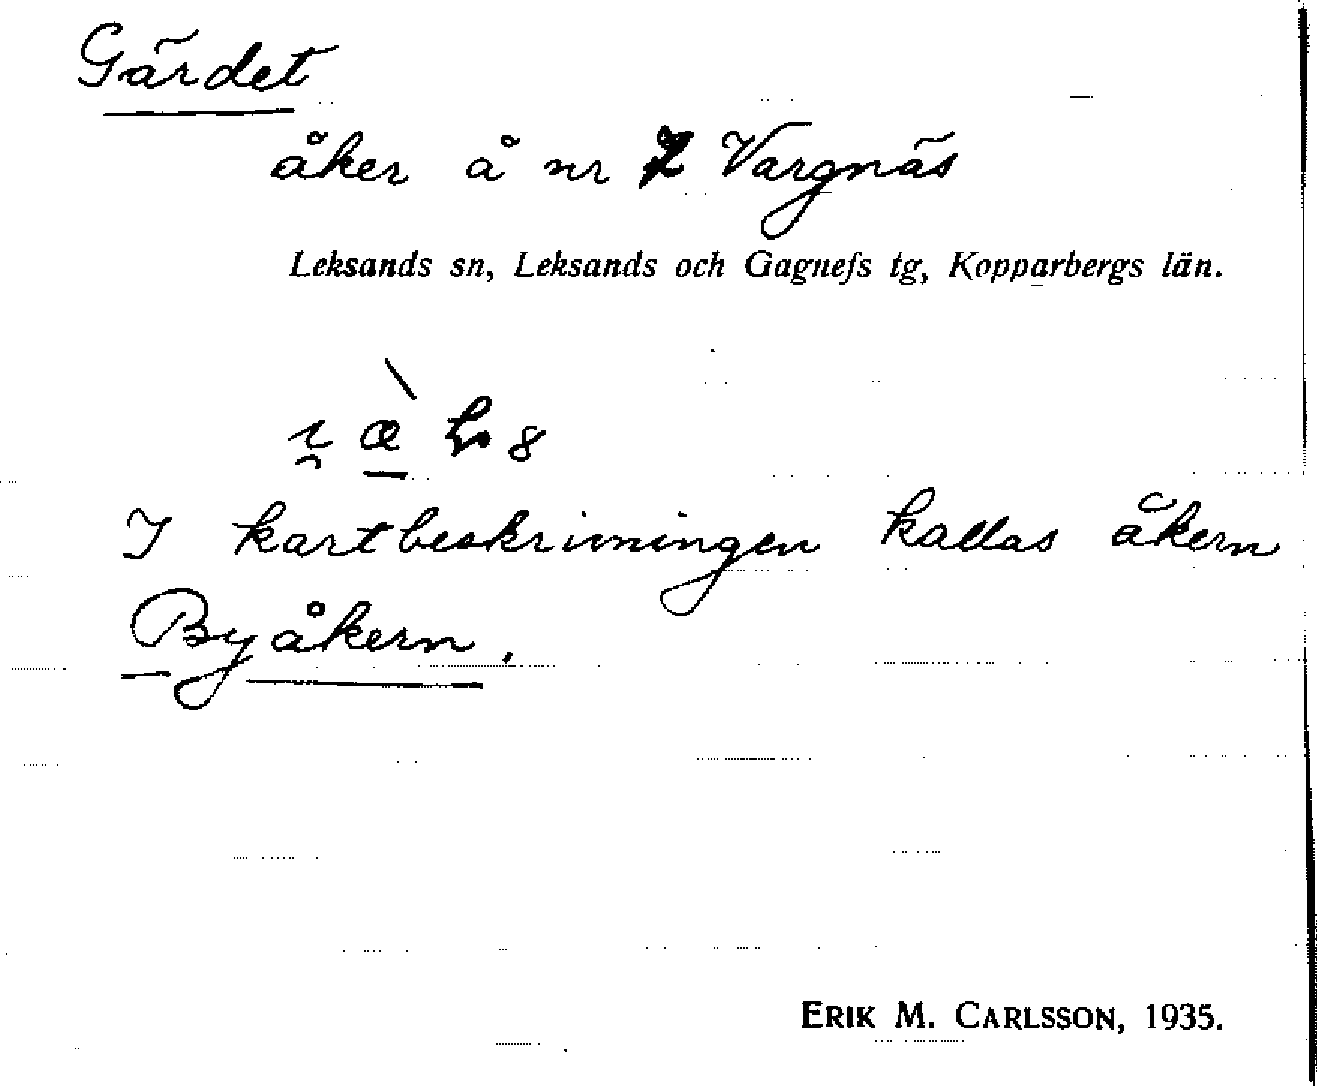 Gärdet
åker å nr Vargnäs
Leksands sn, Leksands och Gagnefs tg, Kopparbergs län.
I kartbeskrivningen kallas åkern
Byåkern.
ERIK M. CARLSSON, 1935.